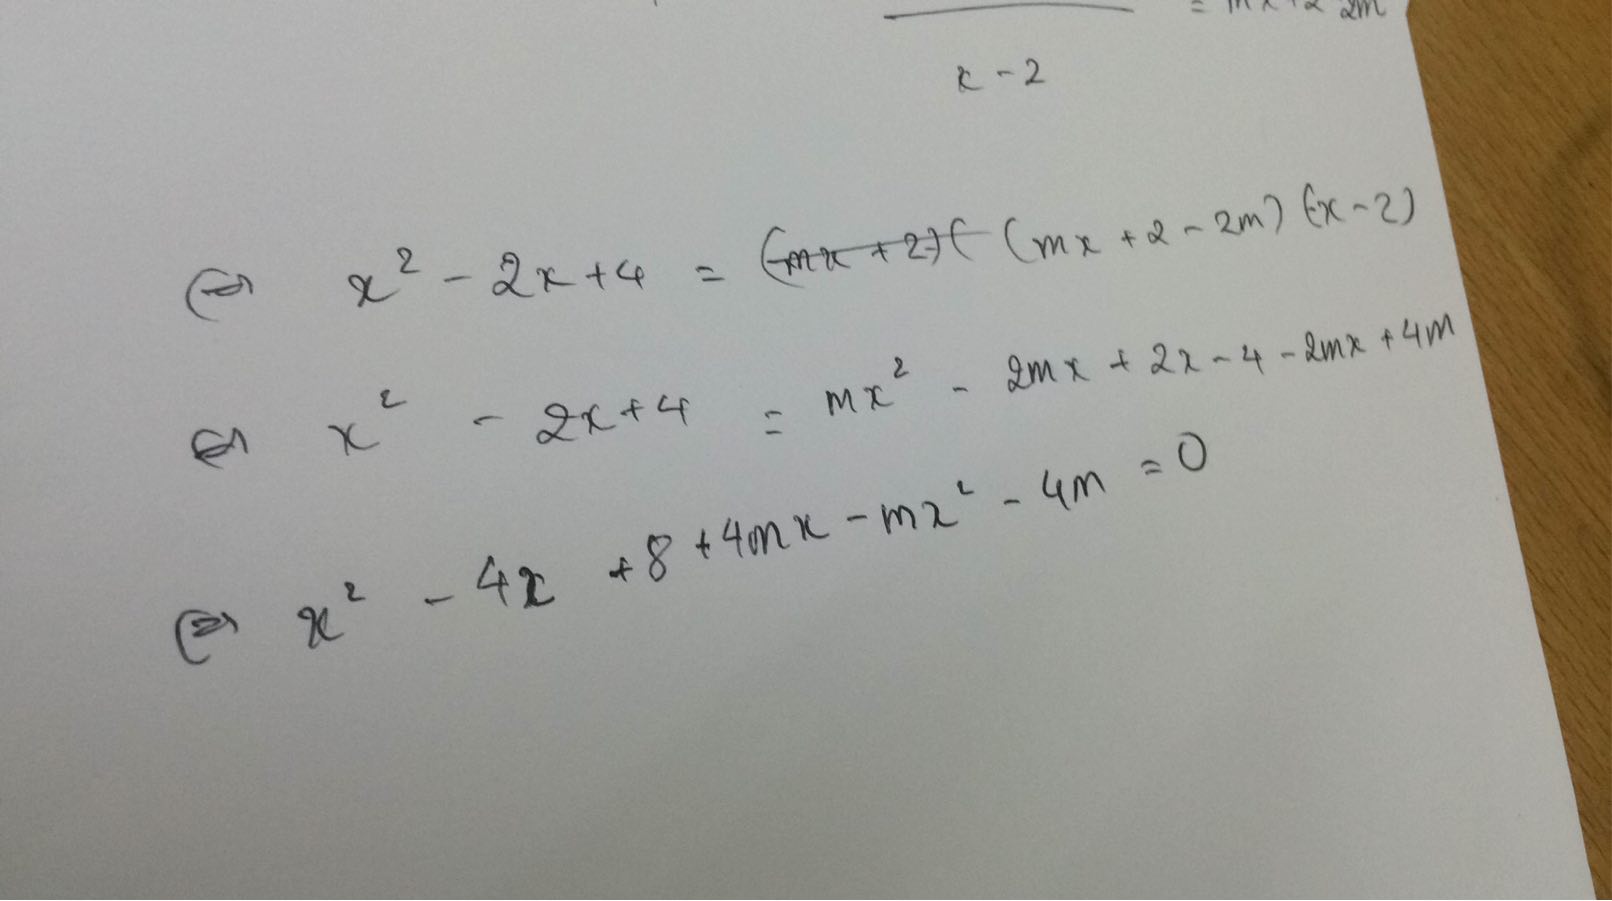 = mx+2-2m
x-2
⇔ x² - 2x+4 = (mx+2)( (mx+2-2m)(x-2)
⇔ x² - 2x+4 = mx² - 2mx + 2x-4-2mx+4m
⇔ x² - 4x +8+4mx-mx²-4m =0